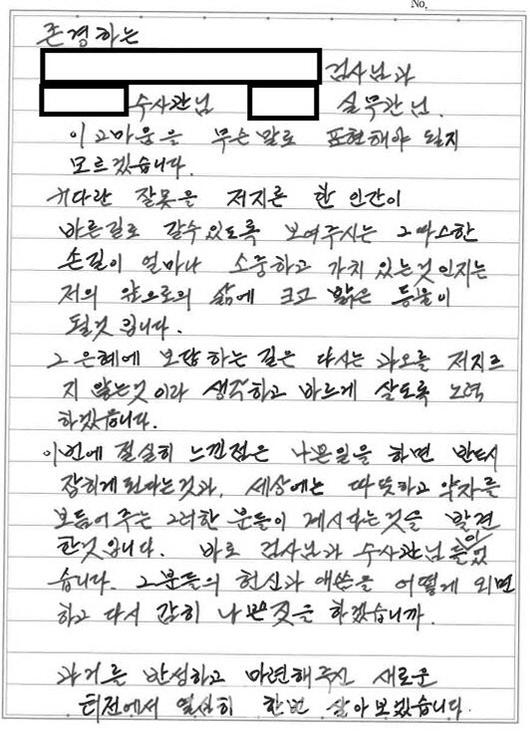 No.
존경하는
검사님과
수사관님 실무관님.
이 고마움을 무슨 말로 표현해야 될지
모르겠습니다.
커다란 잘못을 저지른 한 인간이
바른길로 갈수있도록 보여주시는 그따스한
손길이 얼마나 소중하고 가치 있는것인지는
저의 앞으로의 삶에 크고 밝은 등불이
될것 입니다.
그 은혜에 보답하는 길은 다시는 과오를 저지르
지 않는것 이라 생각하고 바르게 살도록 노력
하겠습니다.
이번에 절실히 느낀점은 나쁜일을 하면 반드시
잡히게 된다는것과, 세상에는 따뜻하고 약자를
보듬어 주는 그러한 분들이 계시다는것을 발견
한것 입니다. 바로 검사님과 수사관님들이었
습니다. 그분들의 헌신과 애씀을 어떻게 외면
하고 다시 감히 나쁜짓을 하겠습니까.
과거를 반성하고 마련해주신 새로운
터전에서 열심히 한번 살아보겠습니다.